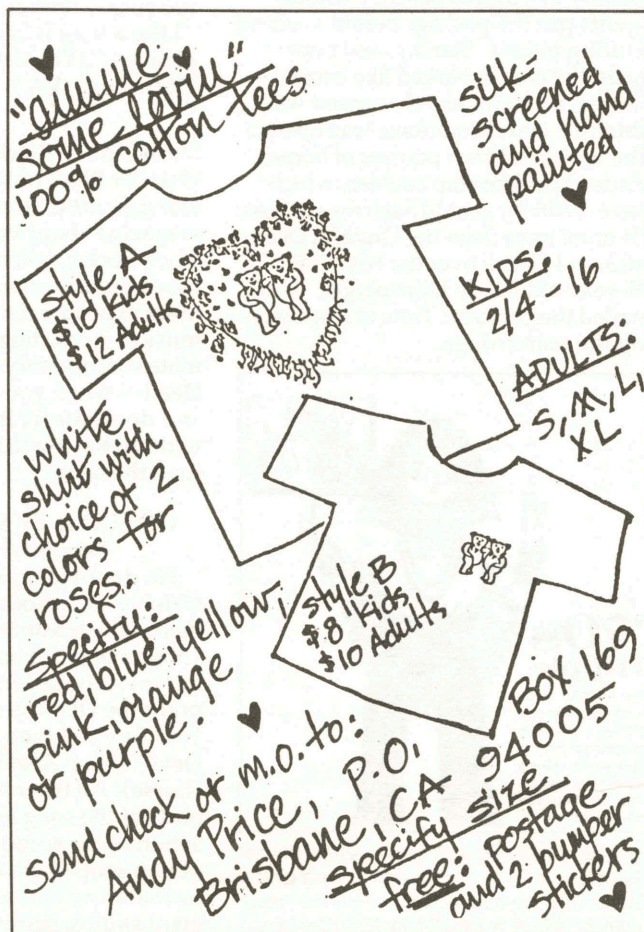 "gimme
some lovin"
100% cotton tees.
silk-
screened
and hand
painted
style A
$10 Kids
$12 Adults
KIDS:
2/4 - 16
ADULTS:
S, M, L,
XL
white
shirt with
choice of 2
colors for
roses.
specify:
red, blue, yellow
pink, orange
or purple.
style B
$8 Kids
$10 Adults
send check or m.o. to:
Andy Price, P.O. Box 169
Brisbane, CA 94005
specify size
free: postage
and 2 bumper
stickers